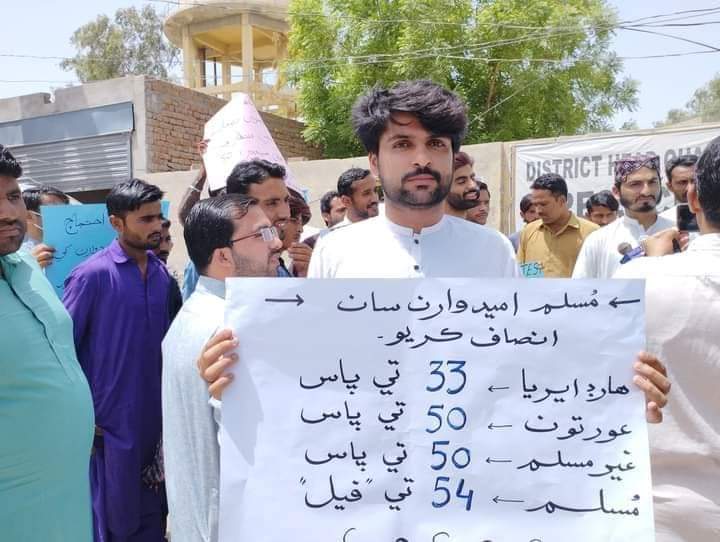 DISTRICT HEAD QUA
احتجاج
TEST
← مُسلم اميدوارن سان →
انصاف ڪريو۔
هارڊ ايريا ← 33 تي پاس
عورتون ← 50 تي پاس
غير مسلم ← 50 تي پاس
مُسلم ← 54 تي "فيل"